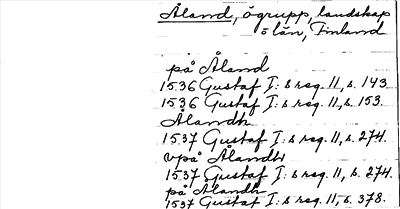 Åland, ögrupp, landskap
o län, Finland
på Åland
1536 Gustaf I:s reg. 11, s. 143.
1536 Gustaf I:s reg. 11, s. 153.
Ålandh
1537 Gustaf I:s reg. 11, s. 274.
vpå Ålandh
1537 Gustaf I:s reg. 11, s. 274.
på Ålandh
1537 Gustaf I:s reg. 11, s. 378.